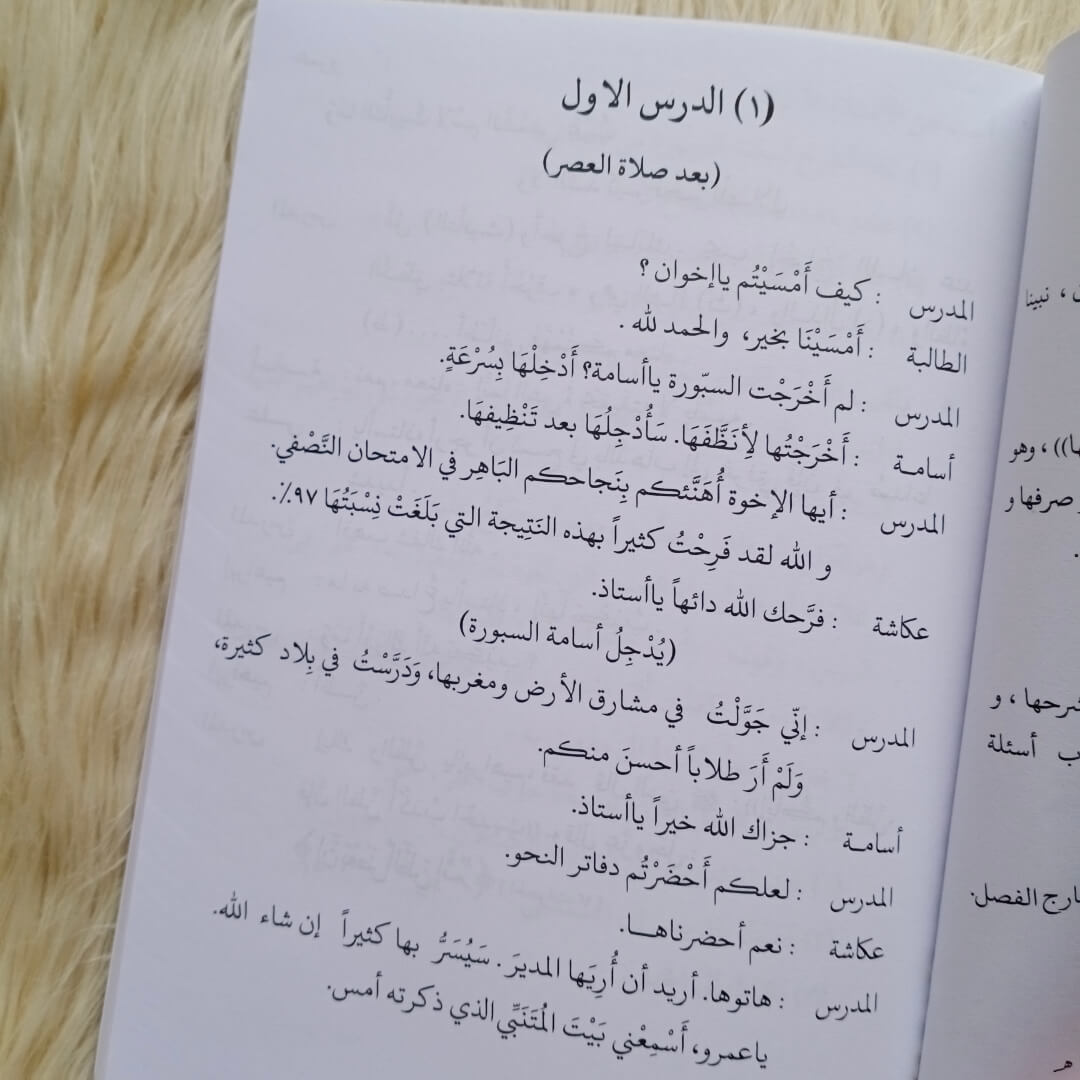 (١) الدرس الاول
(بعد صلاة العصر)
المدرس : كيف أَمْسَيْتُم ياإخوان ؟
الطالبة : أَمْسَيْنَا بخير، والحمد لله .
المدرس : لم أَخْرَجْت السبّورة ياأسامة؟ أَدْخِلْهَا بِسُرْعَةٍ.
أسامـة : أَخْرَجْتُها لِأنَظَّفَهَا. سَأُدْخِلُهَا بعد تَنْظِيفهَا.
المدرس : أيها الإخوة أُهَنَّئكم بِنَجاحكم البَاهِر في الامتحان النَّصْفي.
و الله لقد فَرِحْتُ كثيراً بهذه النَتِيجة التي بَلَغَتْ نِسْبَتُهَا ٩٧٪.
عكاشة : فرَّحك الله دائهاً ياأستاذ.
(يُدْخِلُ أسامة السبورة)
المدرس : إنّي جَوَّلْتُ في مشارق الأرض ومغربها، وَدَرَّسْتُ في بِلاد كثيرة،
وَلَمْ أَرَ طلاباً أحسنَ منكم.
أسامـة : جزاك الله خيراً ياأستاذ.
المدرس : لعلكم أَحْضَرْتُم دفاتر النحو.
عكاشة : نعم أحضرناهـا.
المدرس : هاتوها. أريد أن أُرِيَها المديرَ . سَيُسَرُّ بها كثيراً إن شاء الله.
ياعمرو، أَسْمِعْني بَيْتَ المُتَنَبِّي الذي ذكرته أمس.
، نبينا
، وهو
و صرفها و
شرحها ، و
أسئلة
الفصل.